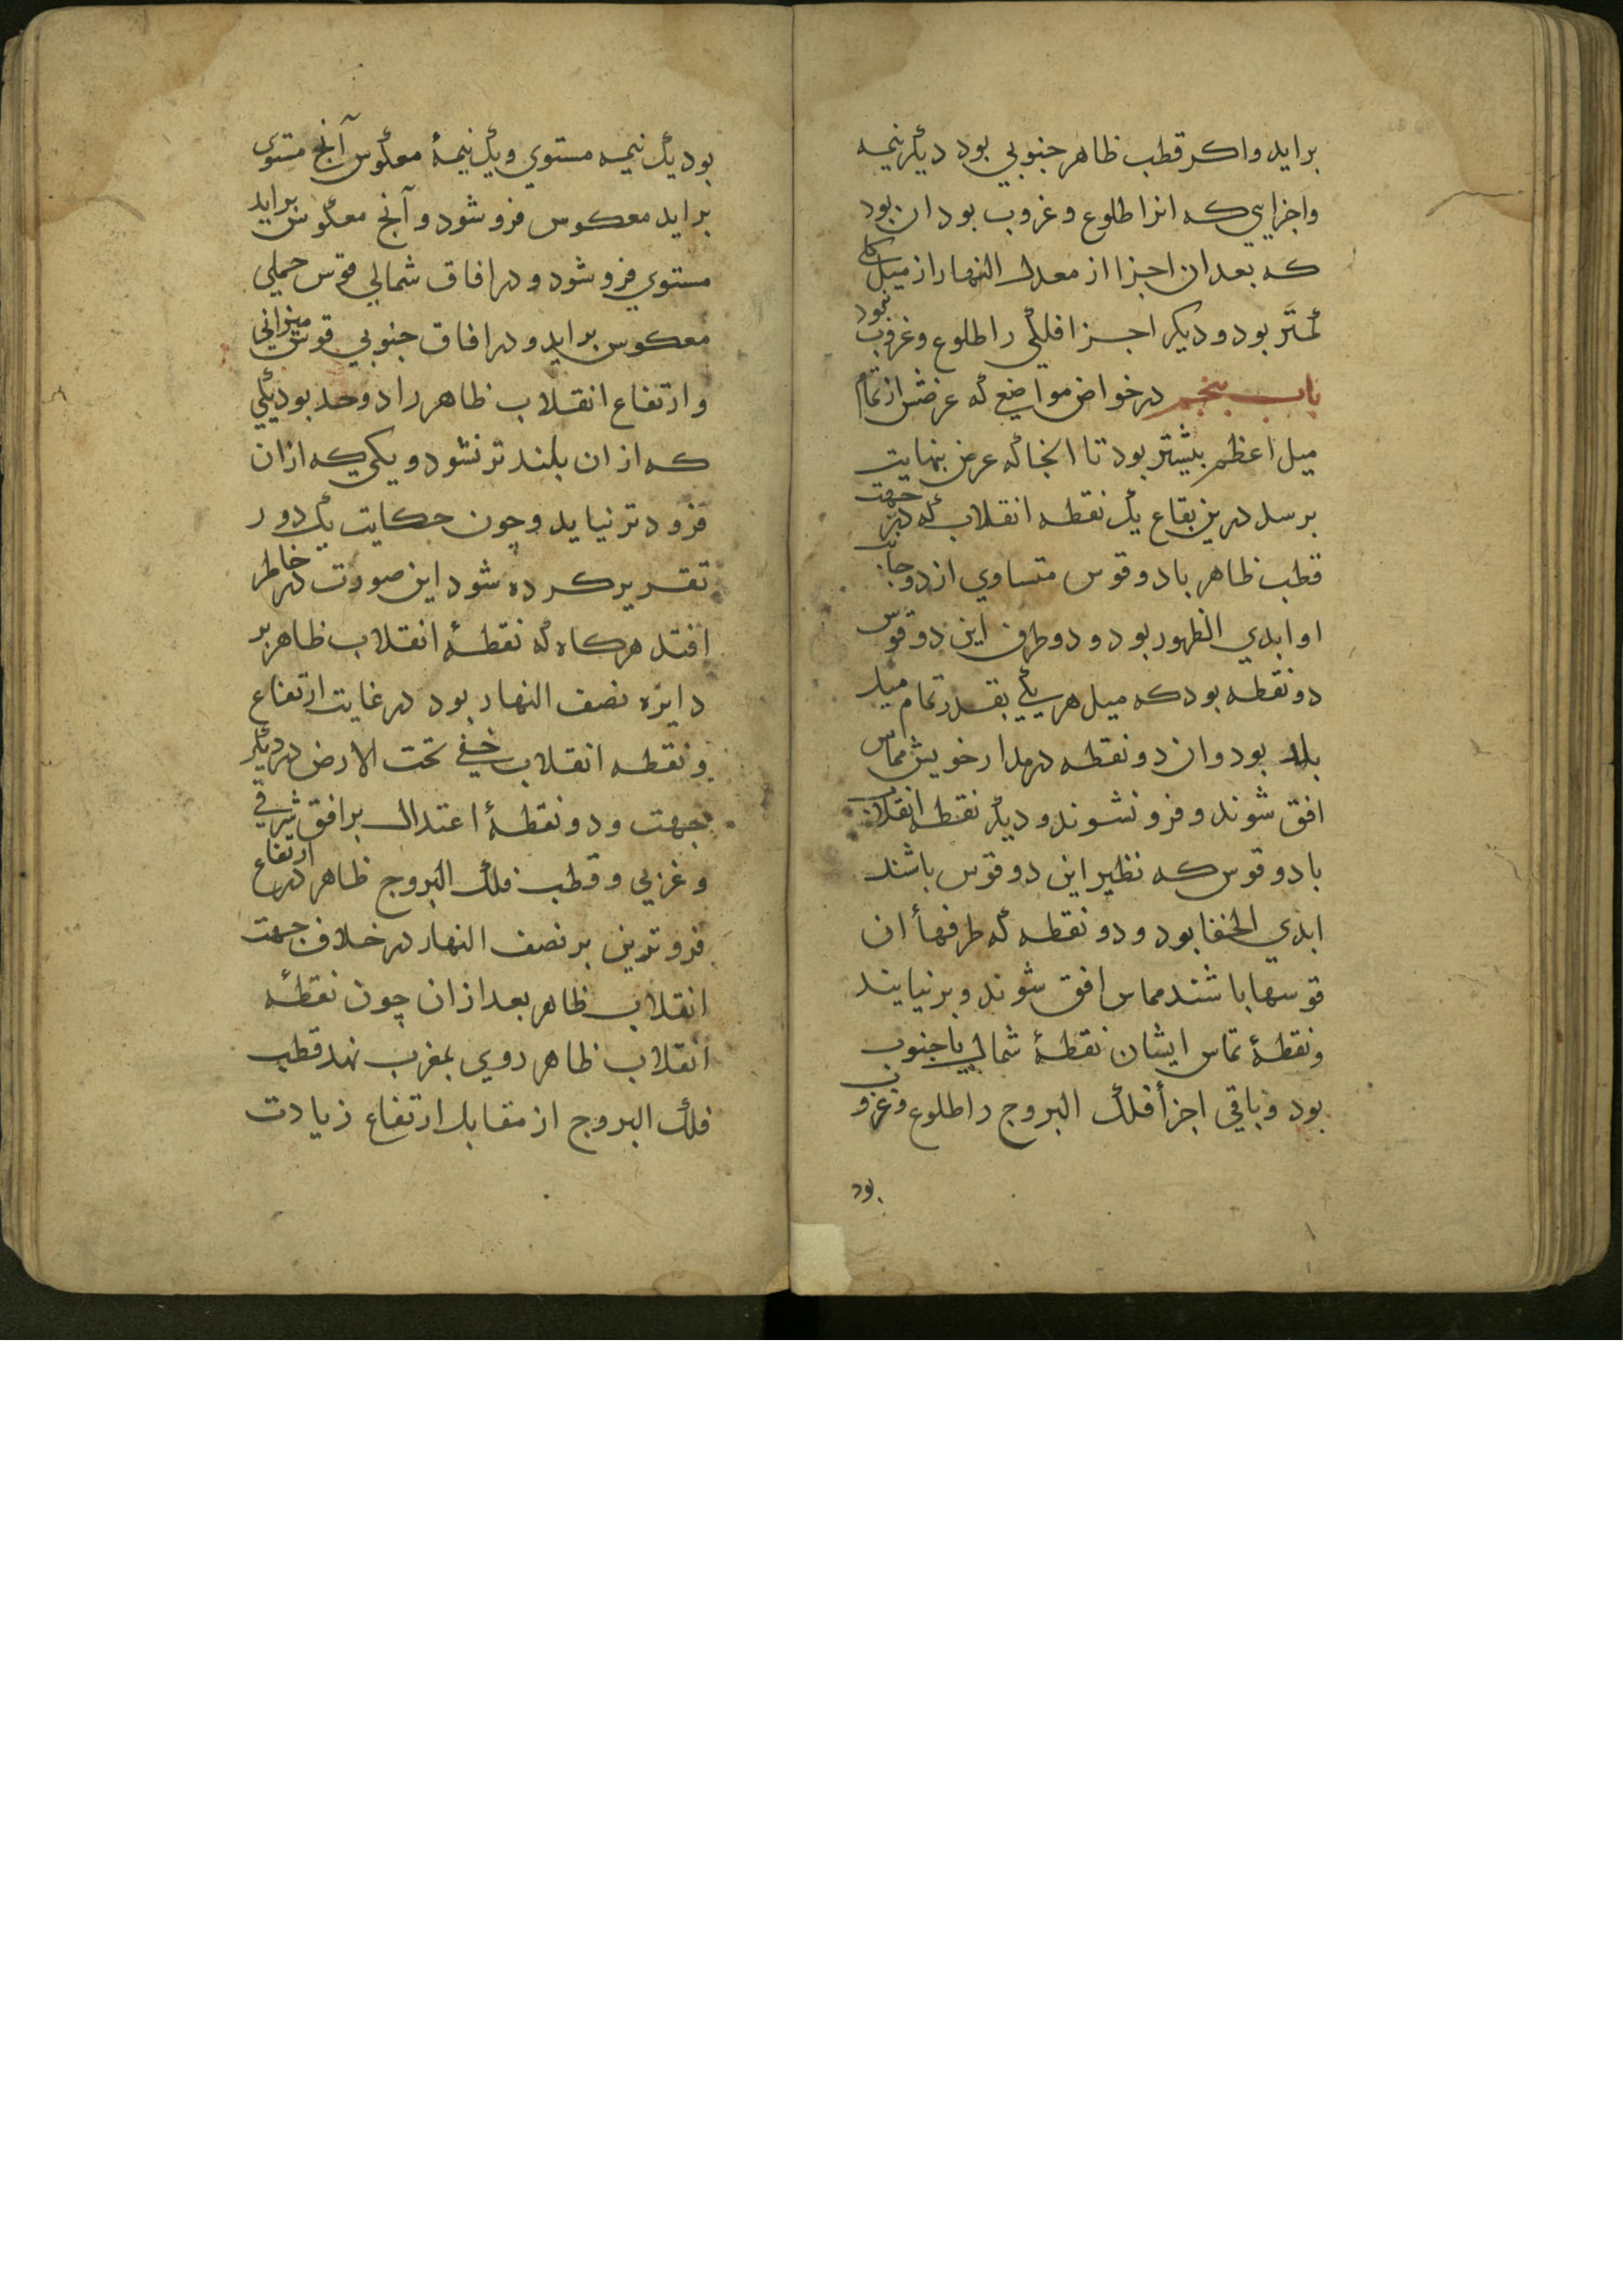 براید واکر قطب ظاهر جنوبي بود دیکر نیمه
واجزایي که انرا طلوع وغروب بود ان بود
که بعد ان اجزا از معدل النهار از میل کلي
کمتر بود و دیکر اجزا فلکي را طلوع وغروب نبود
باب پنجم در خواص مواضع که عرضش از تمام
میل اعظم بیشتر بود تا انجا که عرض بنهایت
برسد درین بقاع یک نقطه انقلاب که در جهت
قطب ظاهر با دو قوس متساوي از دو جانب
او ابدي الظهور بود و دو طرف این دو قوس
دو نقطه بود که میل هر یکي بقدر تمام میل
بلد بود وان دو نقطه در مدار خویش مماس
افق شوند و فرو نشوند و دیکر نقطه انقلاب
با دو قوس که نظیر این دو قوس باشند
ابدي الخفا بود و دو نقطه که طرفهأ ان
قوسها باشند مماس افق شوند و بر نیایند
ونقطۀ تماس ایشان نقطۀ شمال یا جنوب
بود و باقي اجزأ فلک البروج را طلوع وغروب
بود
بود یک نیمه مستوي ویک نیمۀ معکوس آنچ مستوي
براید معکوس فرو شود و آنچ معکوس براید
مستوي فرو شود و در افاق شمالي قوس حملي
معکوس براید و در افاق جنوبي قوس میزاني
وارتفاع انقلاب ظاهر را دو حد بود یکي
که از ان بلند تر نشود و یکي که ازان
فرود تر نیاید وچون حکایت یک دور
تقریر کرده شود این صورت در خاطر
افتد هرکاه که نقطۀ انقلاب ظاهر بر
دایره نصف النهار بود در غایت ارتفاع
ونقطه انقلاب خفي تحت الارض در دیکر
جهت و دو نقطۀ اعتدال بر افق شرقي
وغربي وقطب فلک البروج ظاهر در ارتفاع
فروترین بر نصف النهار در خلاف جهت
انقلاب ظاهر بعد ازان چون نقطۀ
انقلاب ظاهر روي بمغرب نهد قطب
فلک البروج از مقابل ارتفاع زیادت